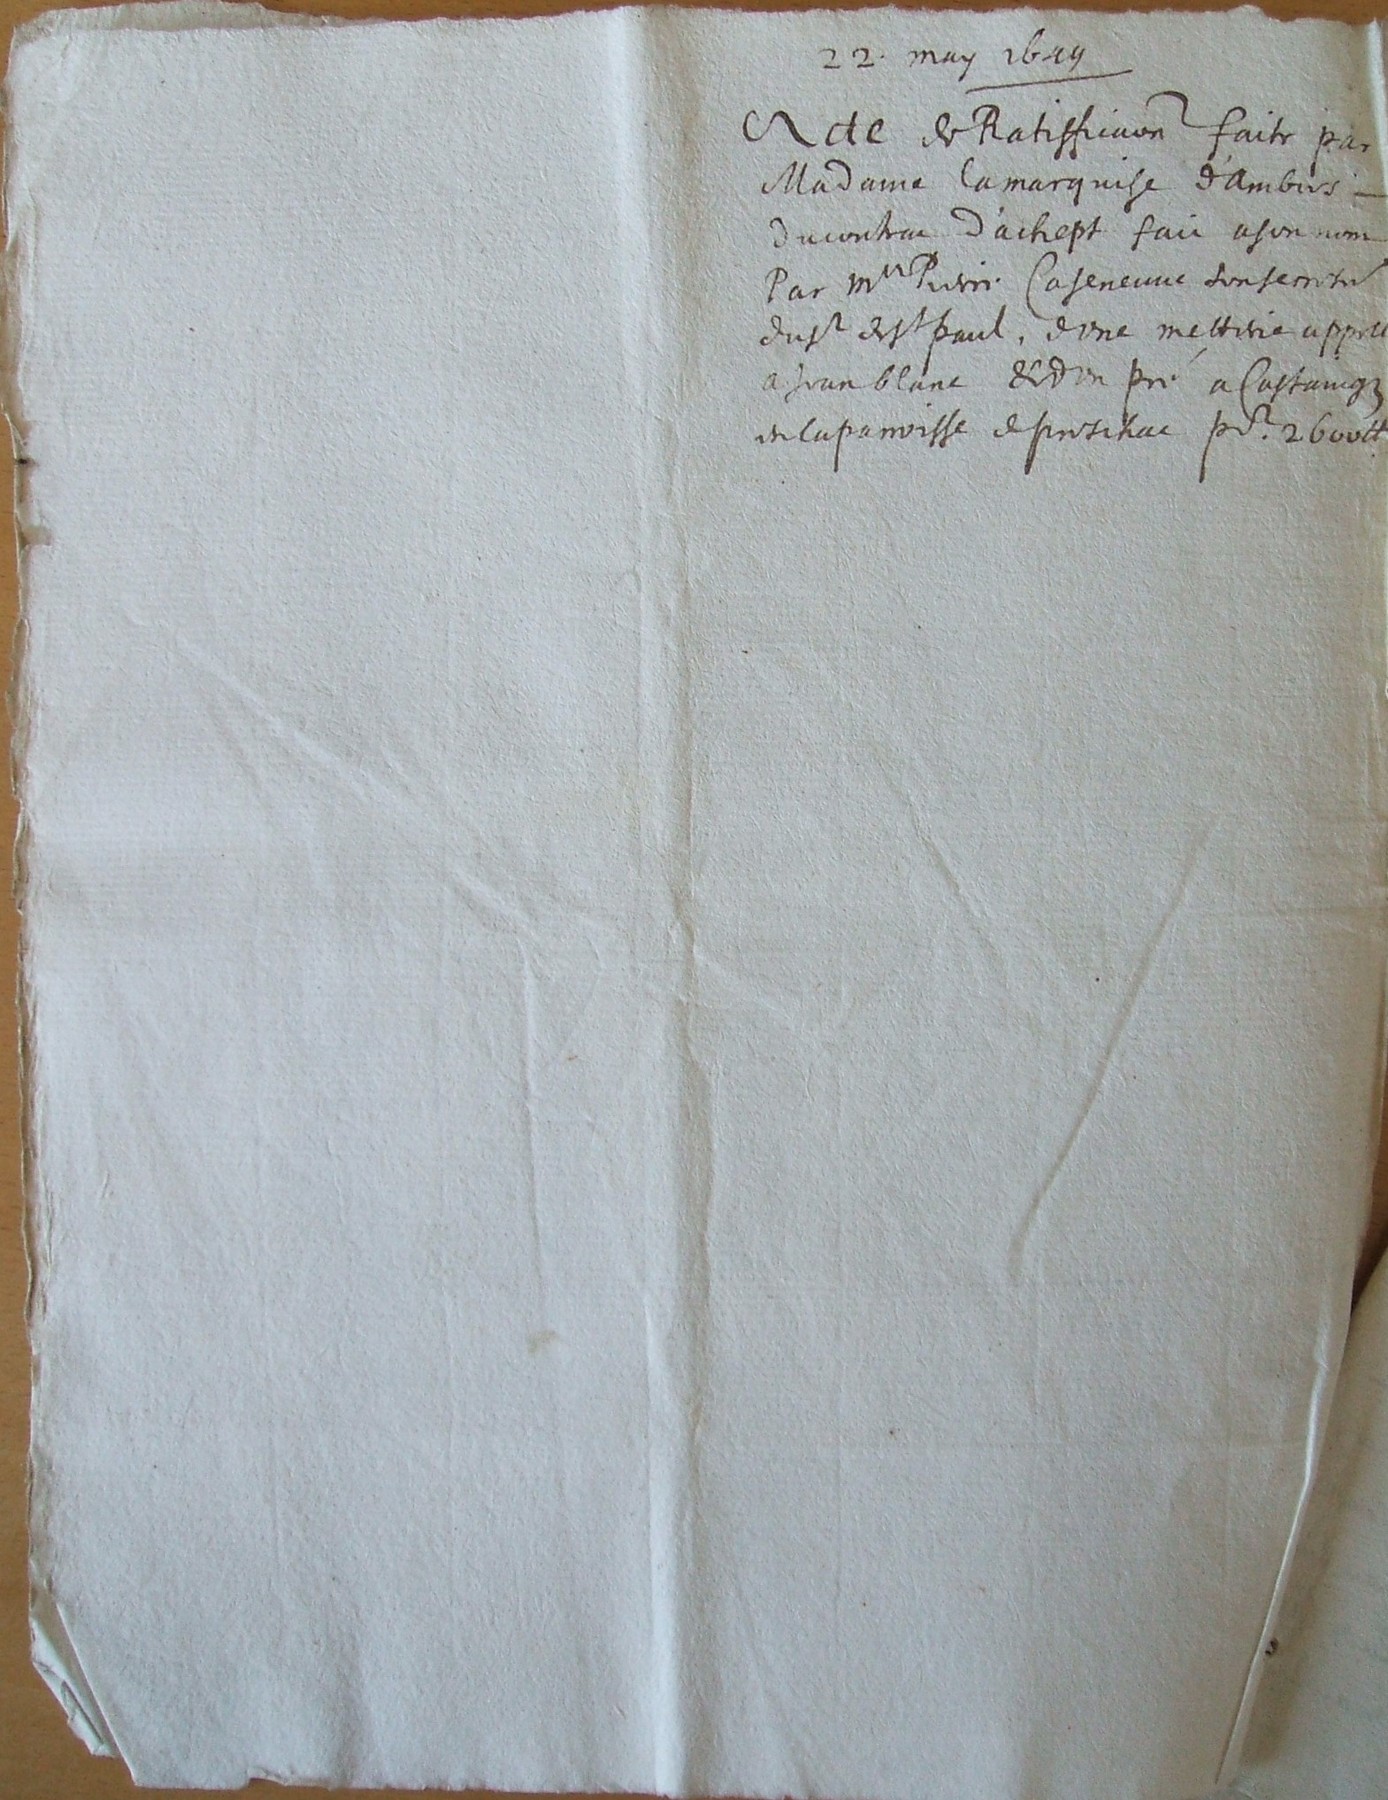 22. may 1649
Acte de Ratiffica[ti]on faite par
Madame lamarquise d'Ambres
ducontrac d'achept faic asonnom
Par mre Pierre Caseneuve
de st paul, dune metterie appelle
a Jean blanc & dun pré a
de laparroisse de pr 2600tt